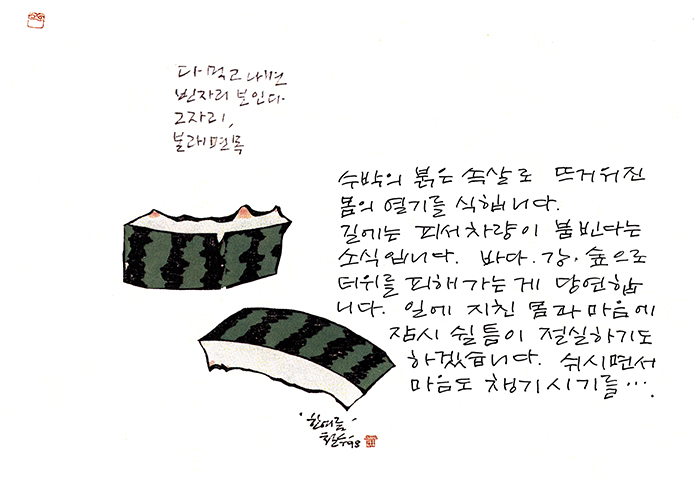 다 먹고 나면
빈자리 보인다
그자리,
본래면목
수박의 붉은 속살로 뜨거워진
몸의 열기를 식힙니다.
길에는 피서차량이 붐빈다는
소식입니다. 바다·강·숲으로
더위를 피해가는게 당연합
니다. 일에 지친 몸과 마음에
잠시 쉴 틈이 절실하기도
하겠습니다. 쉬시면서
마음도 챙기시기를….
'한여름'
철수 98